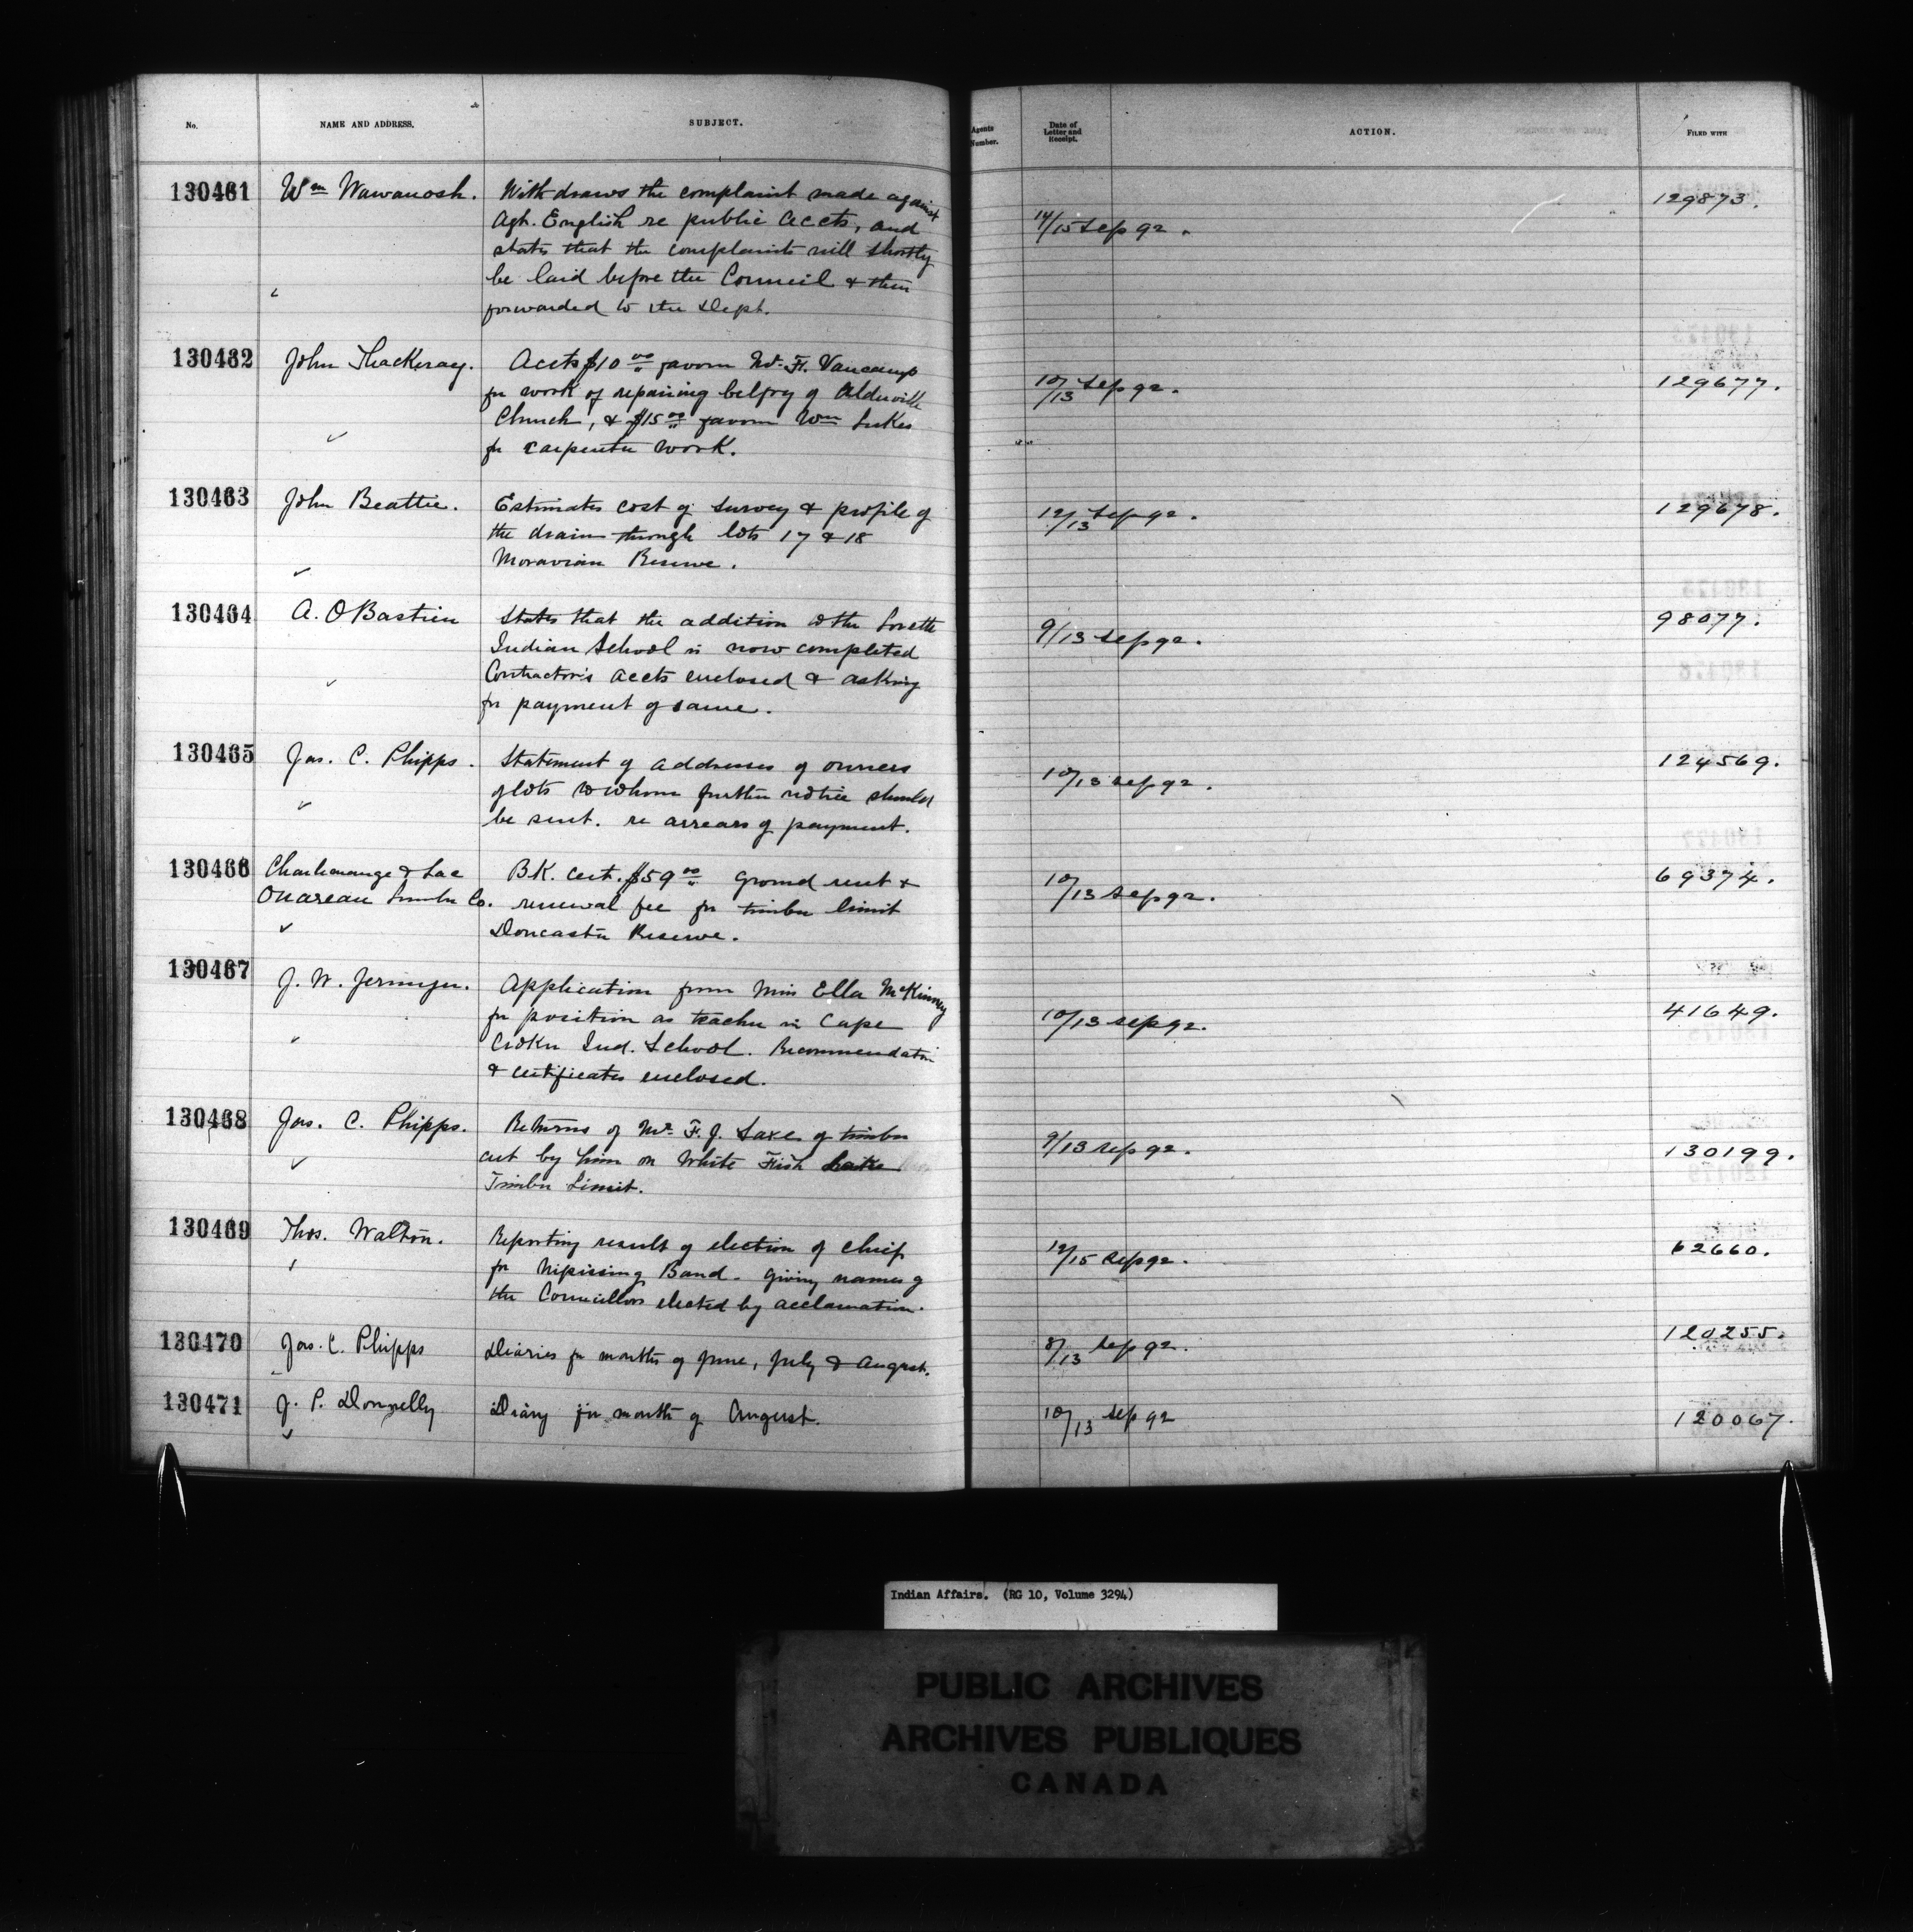 No.
NAME AND ADDRESS.
SUBJECT.
Agents Number.
Date of Letter and Receipt.
ACTION.
FILED WITH
130461
Wm Wawanosh.
Withdraws the complaint made against
Agt. English re public accts, and
states that the complaints will shortly
be laid before the Council & then
forwarded to the Dept.
14/15 Sep 92.
129873.
130462
John Thackeray.
Accts $10 00 favour W. H. Vancamp
for work of repairing belfry of Alderville
Church, & $15 00 favour Wm Lukes
for carpenter work.
10/13 Sep 92.
129677.
130463
John Beattie.
Estimates cost of survey & profile of
the drain through lots 17 & 18
Moravian Reserve.
12/13 Sep 92.
129678.
130464
A. O Bastien
States that the addition to the Lorette
Indian School is now completed
Contractor's accts enclosed & asking
for payment of same.
9/13 Sep 92.
98077.
130465
Jas. C. Phipps.
Statement of addresses of owners
of lots to whom further notice should
be sent. re arrears of payment.
10/13 Sep 92.
124569.
130466
Charlemange & Lac
Ouareau Lumber Co.
BK. cert. $59 00 ground rent &
renewal fee for timber limit
Doncaster Reserve.
10/13 Sep 92.
69374.
130467
J. W. Jermyn.
Application from Miss Ella McKinney
for position as teacher in Cape
Croker Ind. School. Recommendation
& certificates enclosed.
10/13 Sep 92.
41649.
130468
Jas. C. Phipps.
Returns of Mr. F. J. Saxe of timber
cut by him on White Fish Lake
Timber Limit.
9/13 Sep 92.
130199.
130469
Thos. Walton.
Reporting result of election of chief
for Nipissing Band. giving names of
the Councillors elected by acclamation.
12/15 Sep 92.
62660.
130470
Jas. C. Phipps
Diaries for months of June, July & August.
8/13 Sep 92.
120255.
130471
J. P. Donnelly
Diary for month of August.
10/13 Sep 92
120067.
Indian Affairs. (RG 10, Volume 3294)
PUBLIC ARCHIVES
ARCHIVES PUBLIQUES
CANADA